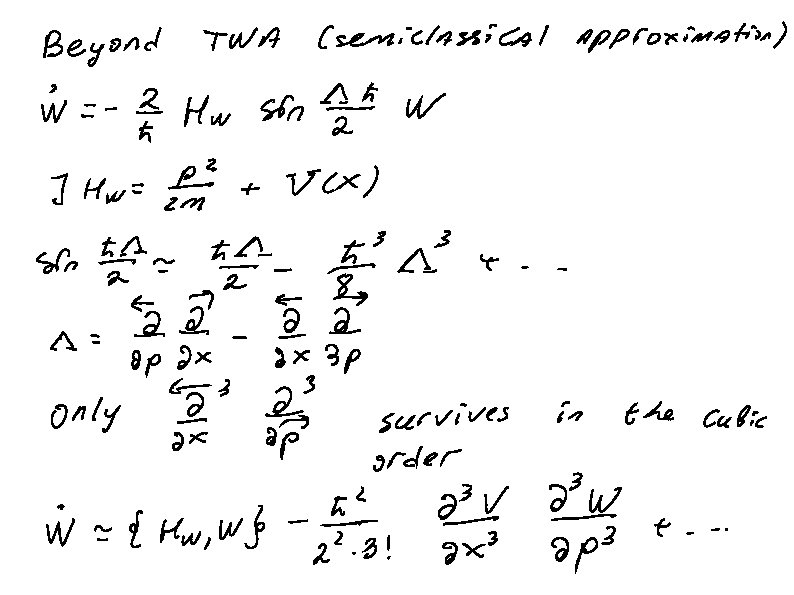 Beyond TWA (semiclassical approximation)
Ẇ = - 2/ħ H_W sin Λħ/2 W
] H_W = p²/2m + V(x)
sin ħΛ/2 ≃ ħΛ/2 - ħ³/8 Λ³ + ...
Λ = ∂⃖/∂p ∂⃗/∂x - ∂⃖/∂x ∂⃗/∂p
only ∂⃖³/∂x ∂³/∂p⃗ survives in the cubic
order
Ẇ ≃ { H_W, W } - ħ²/2²·3! ∂³V/∂x³ ∂³W/∂p³ + ...